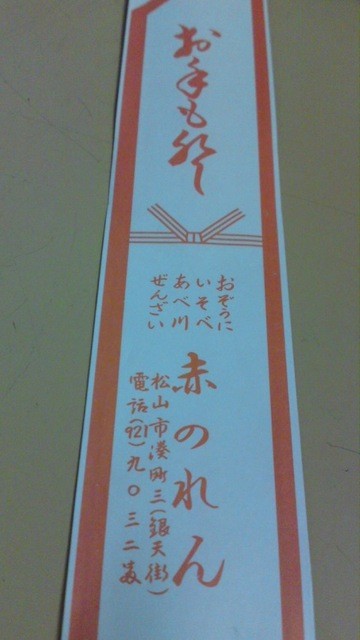 お手もと
おぞうに
いそべ
あべ川
ぜんざい
赤のれん
松山市湊町三(銀天街)
電話(921)九〇三二番